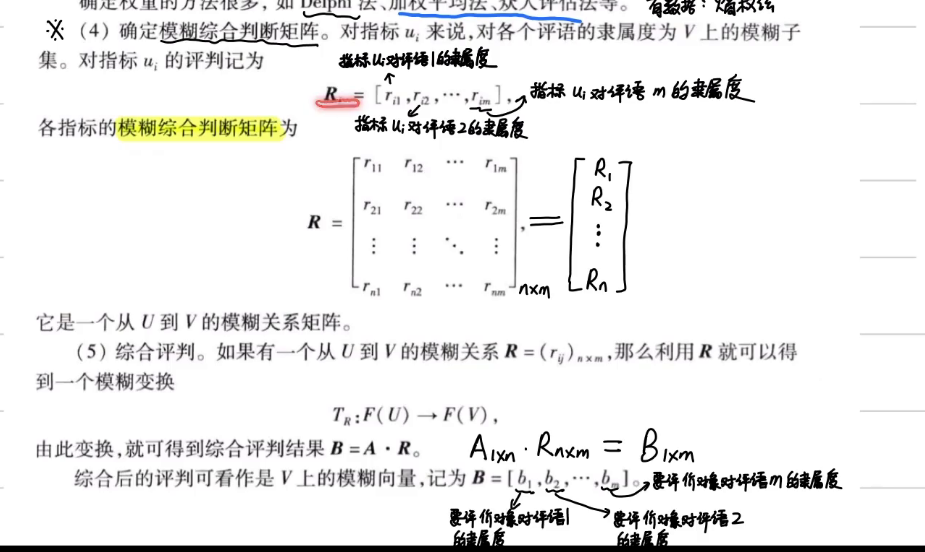 确定权重的方法很多，如 Delphi 法、加权平均法、众人评估法等。 有数据：熵权法
※ (4) 确定模糊综合判断矩阵。对指标 uᵢ 来说,对各个评语的隶属度为 V 上的模糊子
集。对指标 uᵢ 的评判记为
指标 uᵢ 对评语1的隶属度
Rᵢ = [rᵢ₁,rᵢ₂,⋯,rᵢₘ], 指标 uᵢ 对评语 m 的隶属度
指标 uᵢ 对评语2的隶属度
各指标的模糊综合判断矩阵为
r₁₁ r₁₂ ⋯ r₁ₘ R₁
r₂₁ r₂₂ ⋯ r₂ₘ R₂
R = , =
⋮ ⋮ ⋱ ⋮ ⋮
rₙ₁ rₙ₂ ⋯ rₙₘ n×m Rₙ
它是一个从 U 到 V 的模糊关系矩阵。
(5) 综合评判。如果有一个从 U 到 V 的模糊关系 R=(rᵢⱼ)ₙ×ₘ,那么利用 R 就可以得
到一个模糊变换
T_R:F(U)→F(V),
由此变换,就可得到综合评判结果 B=A·R。 A₁×ₙ · Rₙ×ₘ = B₁×ₘ
综合后的评判可看作是 V 上的模糊向量,记为 B=[b₁,b₂,⋯,bₘ]。 要评价对象对评语 m 的隶属度
要评价对象对评语1 要评价对象对评语2
的隶属度 的隶属度